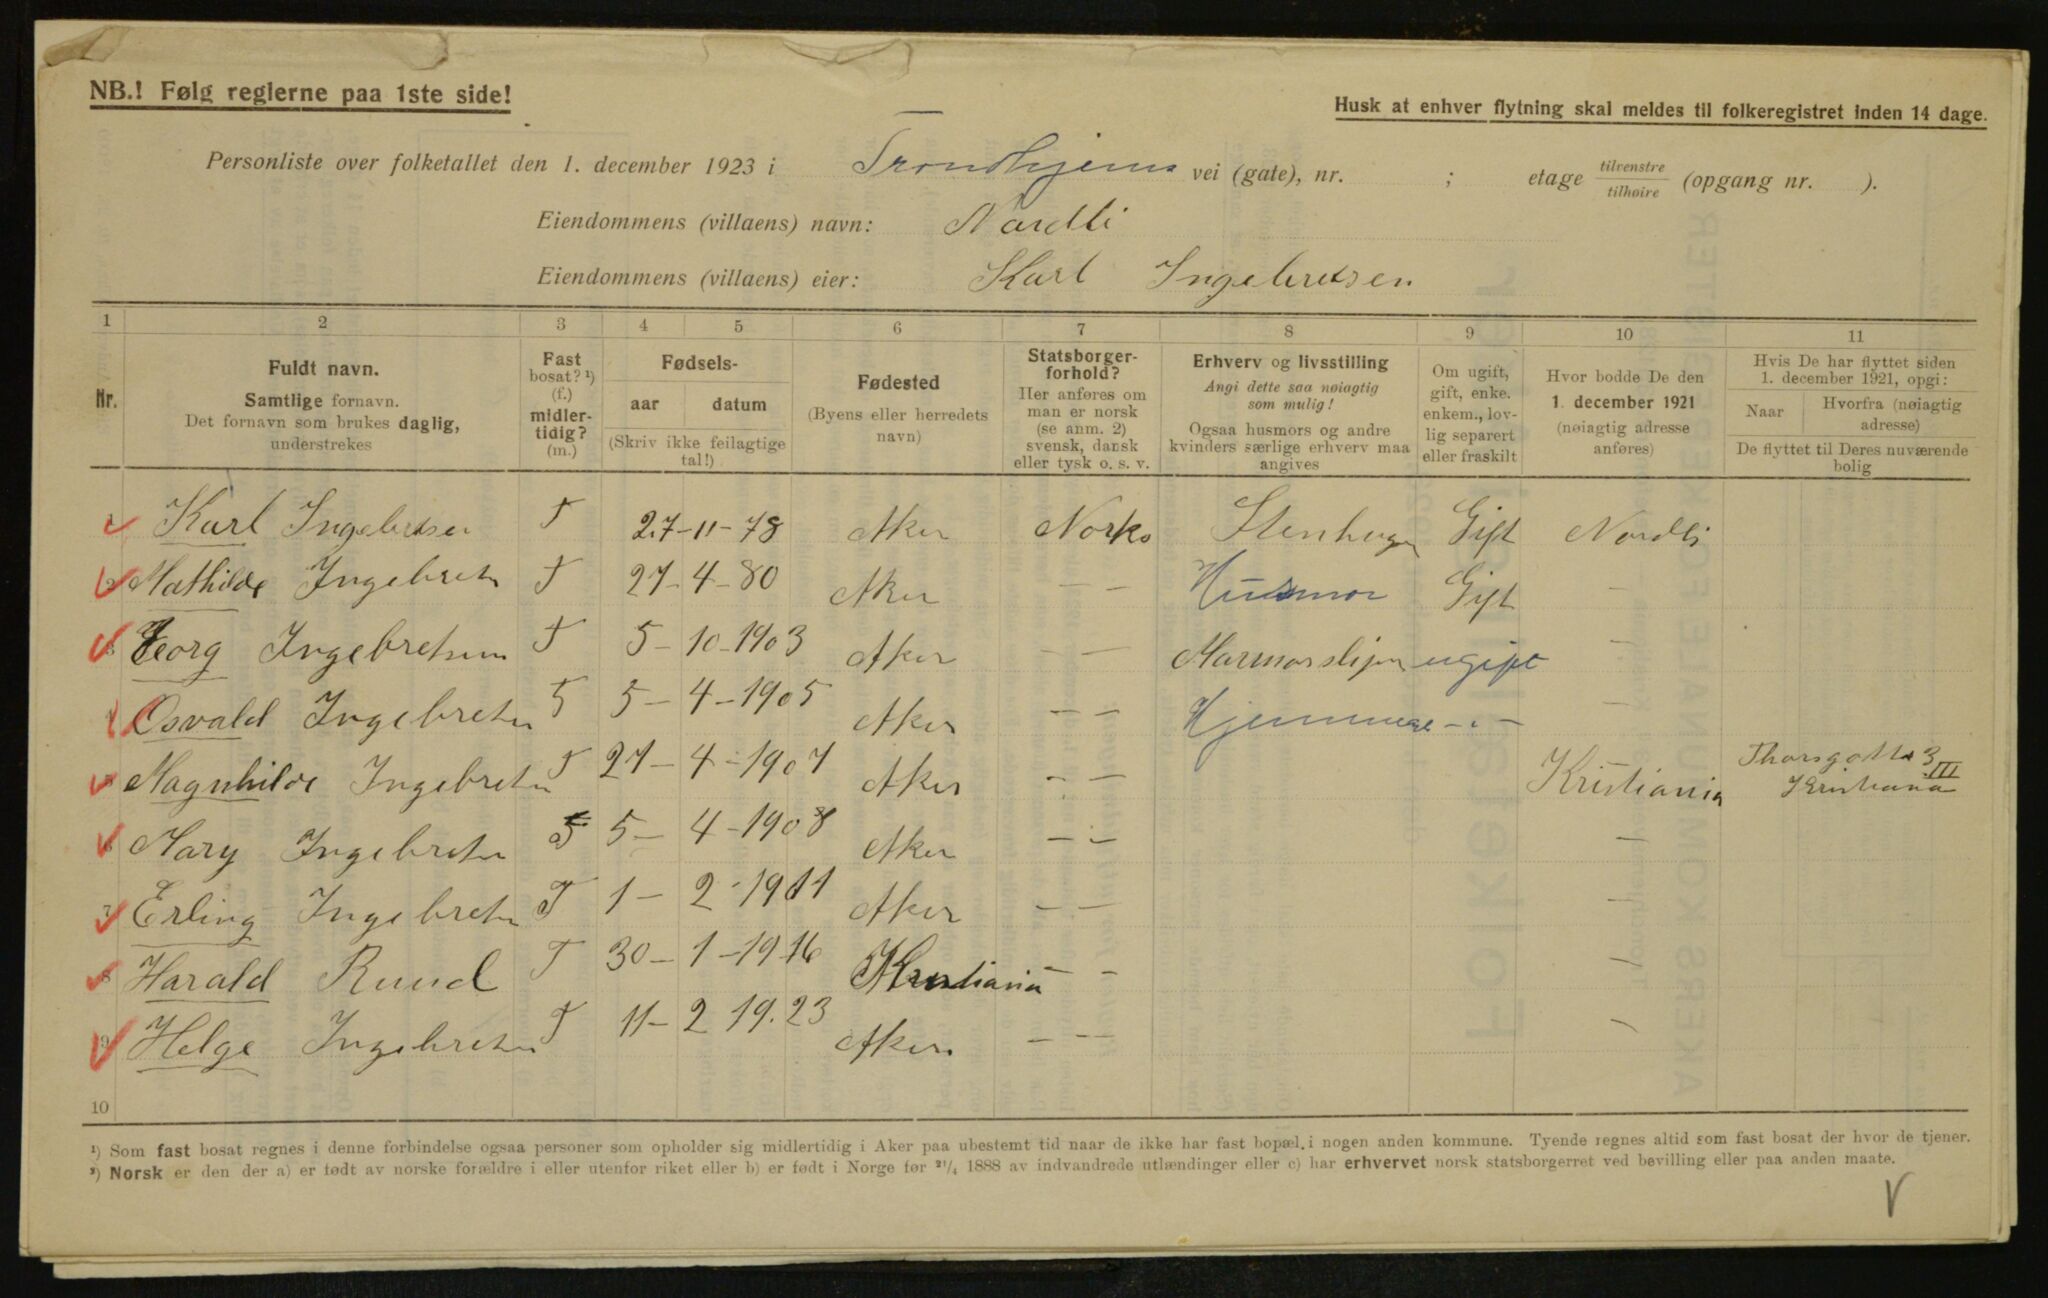 NB.! Følg reglerne paa 1ste side!
Husk at enhver flytning skal meldes til folkeregistret inden 14 dage.
Personliste over folketallet den 1. december 1923 i Trondhjems vei (gate), nr. ; etage tilvenstre / tilhøire (opgang nr. ).
Eiendommens (villaens) navn: Nordli
Eiendommens (villaens) eier: Karl Ingebretsen
1 2 3 4 5 6 7 8 9 10 11
Nr.
Fuldt navn.
Samtlige fornavn.
Det fornavn som brukes daglig,
understrekes
Fast
bosat? ¹)
(f.)
midler-
tidig?
(m.)
Fødsels-
aar datum
(Skriv ikke feilagtige
tal!)
Fødested
(Byens eller herredets
navn)
Statsborger-
forhold?
Her anføres om
man er norsk
(se anm. 2)
svensk, dansk
eller tysk o. s. v.
Erhverv og livsstilling
Angi dette saa nøiagtig
som mulig!
Ogsaa husmors og andre
kvinders særlige erhverv maa
angives
Om ugift,
gift, enke.
enkem., lov-
lig separert
eller fraskilt
Hvor bodde De den
1. december 1921
(nøiagtig adresse
anføres)
Hvis De har flyttet siden
1. december 1921, opgi:
Naar
Hvorfra (nøiagtig
adresse)
De flyttet til Deres nuværende
bolig
1 Karl Ingebretsen F 27-11-78 Aker Norsk Stenhuger Gift Nordli
2 Mathilde Ingebretsen F 27-4-80 Aker — — Husmor Gift —
3 Georg Ingebretsen F 5-10-1903 Aker — — Marmorsliper ugift —
4 Osvald Ingebretsen F 5-4-1905 Aker — — Hjemmeværende -"- —
5 Magnhilde Ingebretsen F 27-4-1907 Aker — — Kristiania Thorsgatte 3 III Kristiania
6 Mary Ingebretsen F 5-4-1908 Aker — — —
7 Erling Ingebretsen F 1-2-1911 Aker — — —
8 Harald Ruud F 30-1-1916 Kristiania — — —
9 Helge Ingebretsen F 11-2 19.23 Aker. — — —
10
¹) Som fast bosat regnes i denne forbindelse ogsaa personer som opholder sig midlertidig i Aker paa ubestemt tid naar de ikke har fast bopæl i nogen anden kommune. Tyende regnes altid som fast bosat der hvor de tjener.
²) Norsk er den der a) er født av norske forældre i eller utenfor riket eller b) er født i Norge før ²¹/₄ 1888 av indvandrede utlændinger eller c) har erhvervet norsk statsborgerret ved bevilling eller paa anden maate.
V